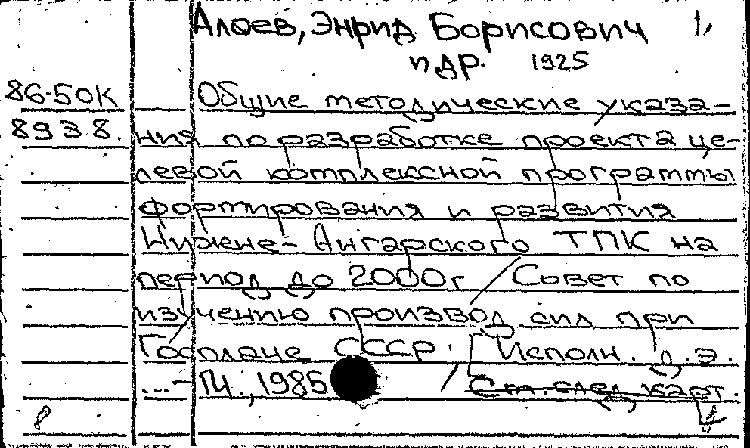 Алоев, Энрид Борисович 1,
и др. 1925
86-50К Общие методические указа-
8938. ния по разработке проекта це-
левой комплексной программы
формирования и развития
Нижне-Ангарского ТПК на
период до 2000г / Совет по
изучению производ. сил при
Госплане СССР; [Исполн. д.э.
...- М., 1985 / См.след.карт.